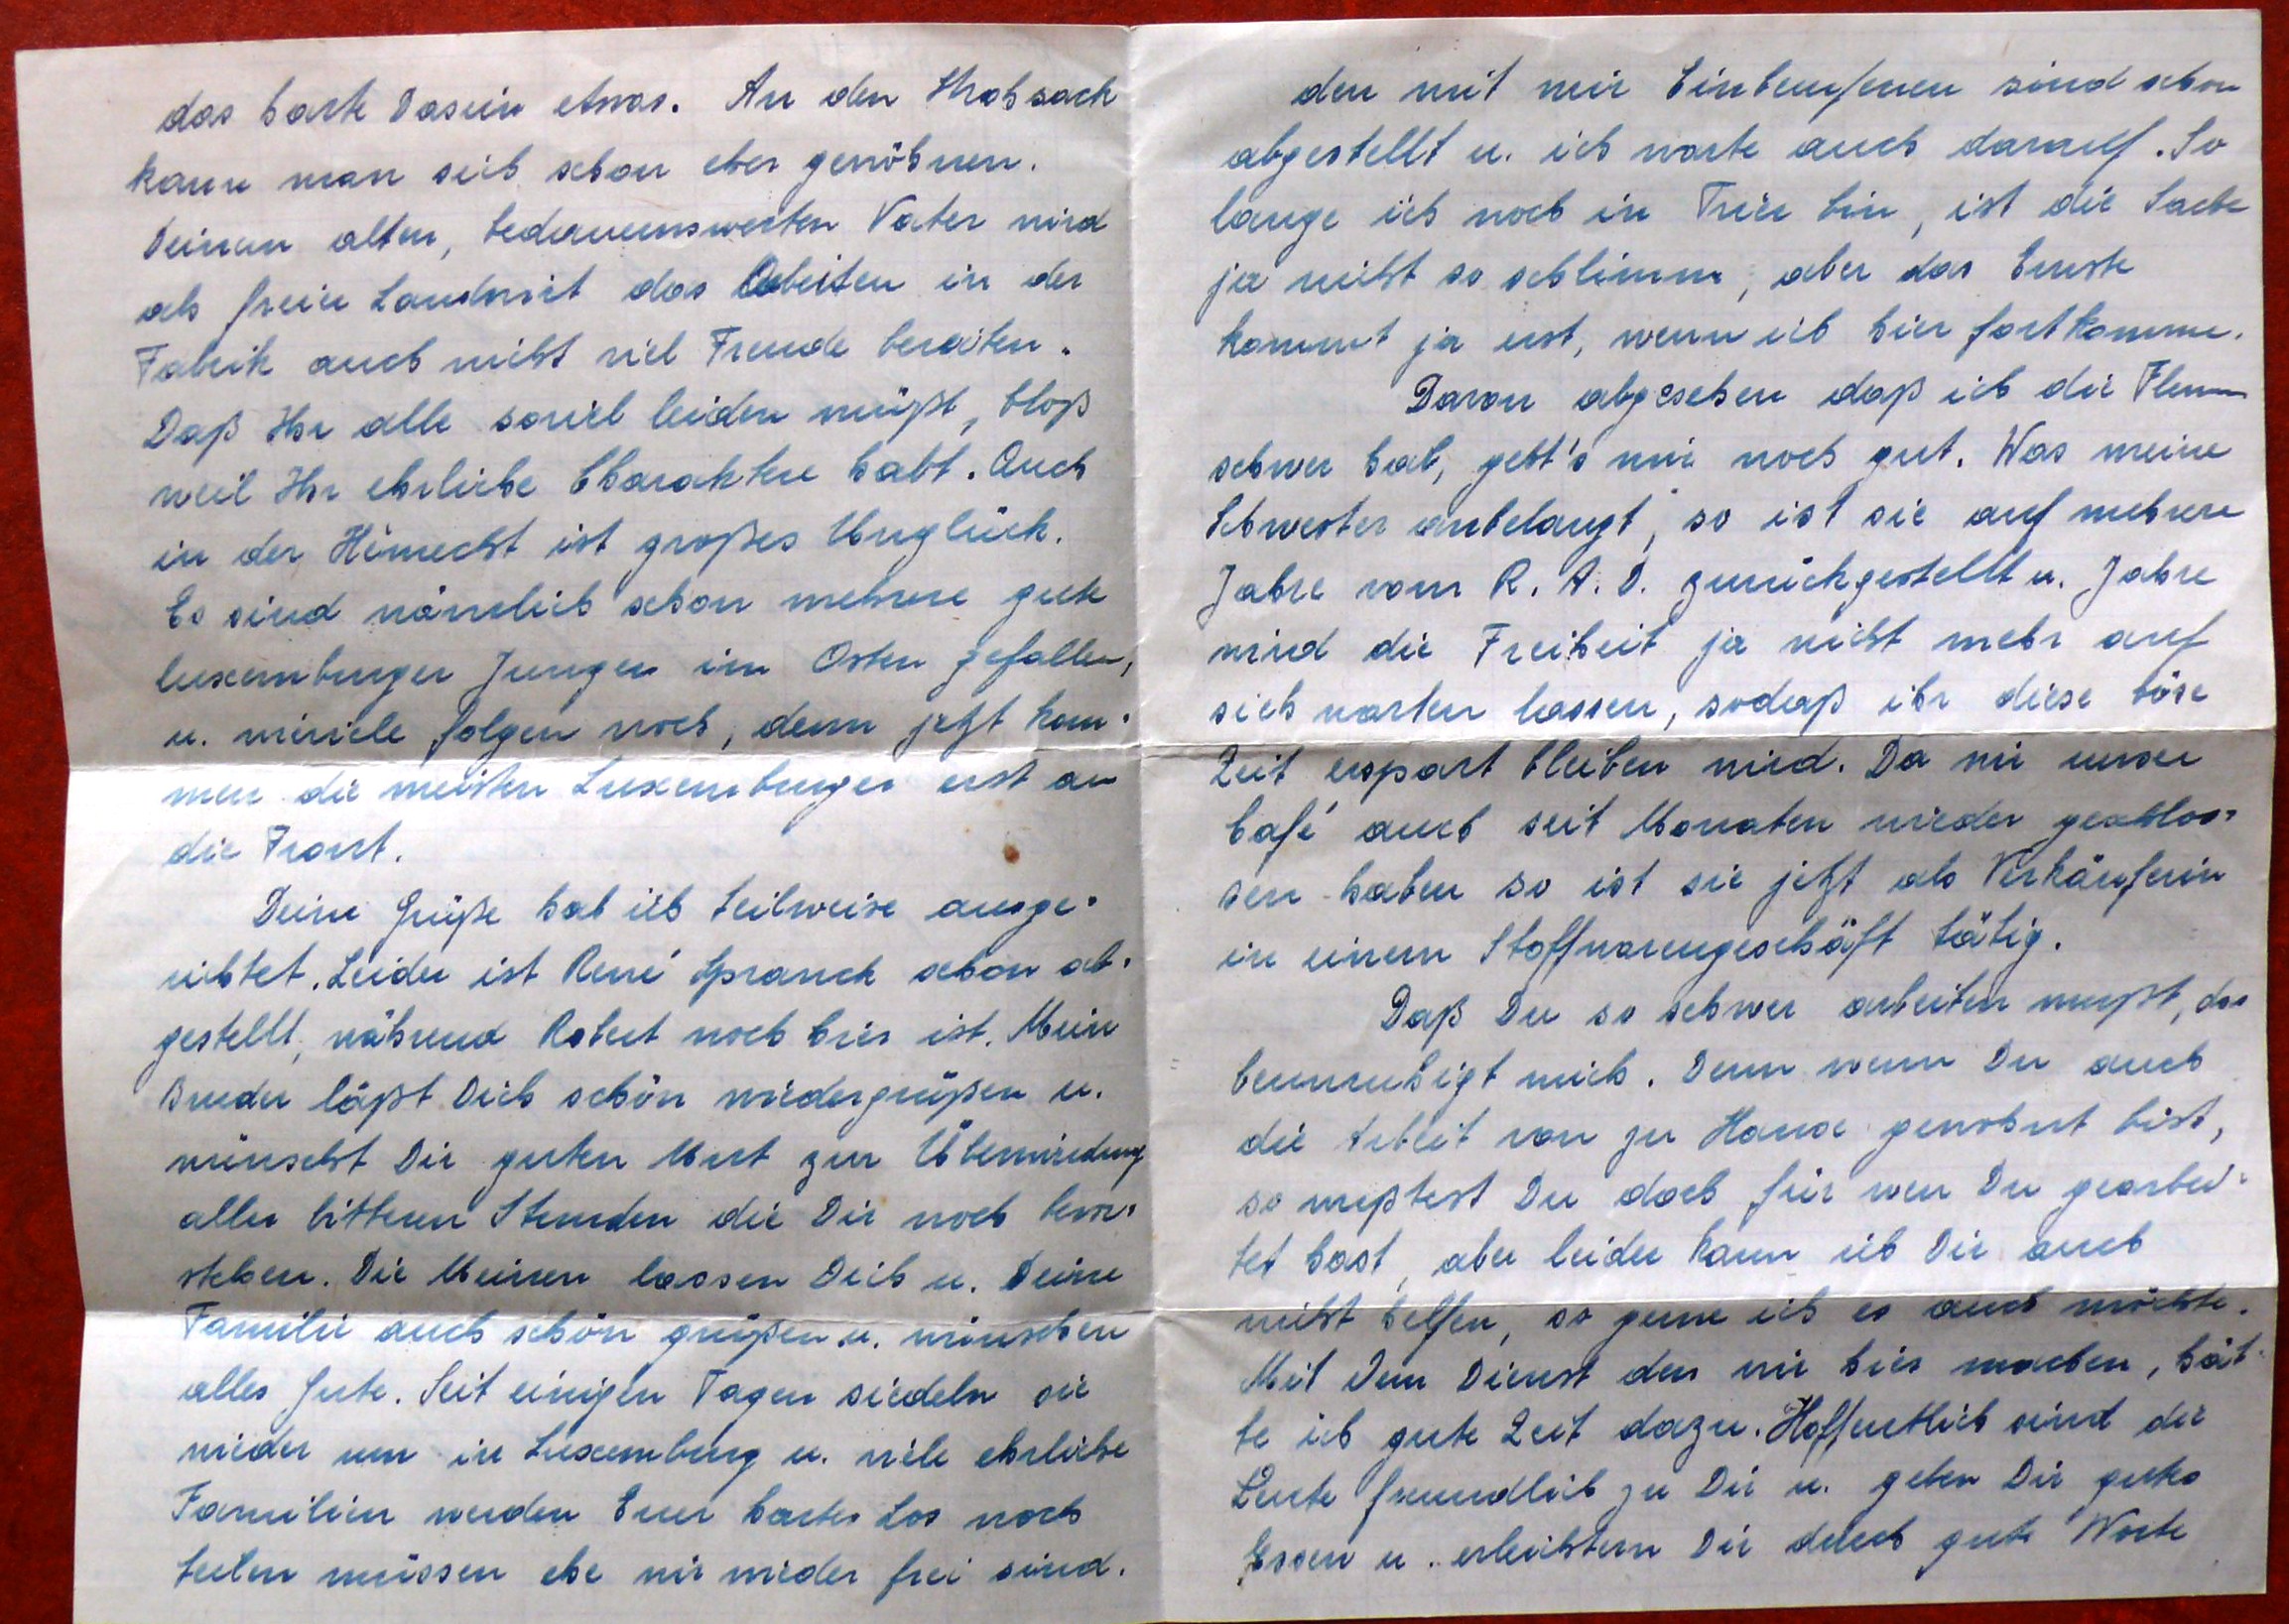 das harte Dasein etwas. An den Strohsack
kann man sich schon eher gewöhnen.
Deinem alten, bedauernswerten Vater wird
als freier Landwirt das Arbeiten in der
Fabrik auch nicht viel Freude bereiten.
Daß Ihr alle soviel leiden müßt, bloß
weil Ihr ehrliche Charaktere habt. Auch
in der Hémecht ist großes Unglück.
Es sind nämlich schon mehrere gute
luxemburger Jungen im Osten gefallen,
u. wieviele folgen noch, denn jetzt kom-
men die meisten Luxemburger erst an
die Front.
Deine Grüße hab ich teilweise ausge-
richtet. Leider ist René Spranck schon ab-
gestellt, während Robert noch hier ist. Mein
Bruder läßt Dich schön wiedergrüßen u.
wünscht Dir guten Mut zur Überwindung
aller bitteren Stunden die Dir noch bevor-
stehen. Die Meinen lassen Dich u. Deine
Familie auch schön grüßen u. wünschen
alles Gute. Seit einigen Tagen siedeln sie
wieder um in Luxemburg u. viele ehrliche
Familien werden Euer hartes Los noch
teilen müssen ehe wir wieder frei sind.
den mit mir Einberufenen sind schon
abgestellt u. ich warte auch darauf. So
lange ich noch in Trier bin, ist die Sache
ja nicht so schlimm, aber das Ernste
kommt ja erst, wenn ich hier fortkomme.
Davon abgesehen daß ich die Flemm
schwer hab, geht's mir noch gut. Was meine
Schwester anbelangt, so ist sie auf mehrere
Jahre vom R. A. D. zurückgestellt u. Jahre
wird die Freiheit ja nicht mehr auf
sich warten lassen, sodaß ihr diese böse
Zeit erspart bleiben wird. Da wir unser
Café auch seit Monaten wieder geschlos-
sen haben so ist sie jetzt als Verkäuferin
in einem Stoffwarengeschäft tätig.
Daß Du so schwer arbeiten mußt, das
beunruhigt mich. Denn wenn Du auch
die Arbeit von zu Hause gewohnt bist,
so wußtest Du doch für wen Du gearbei-
tet hast, aber leider kann ich Dir auch
nicht helfen, so gerne ich es auch möchte.
Mit dem Dienst den wir hier machen, hät-
te ich gute Zeit dazu. Hoffentlich sind die
Leute freundlich zu Dir u. geben Dir gutes
Essen u. erleichtern Dir durch gute Worte